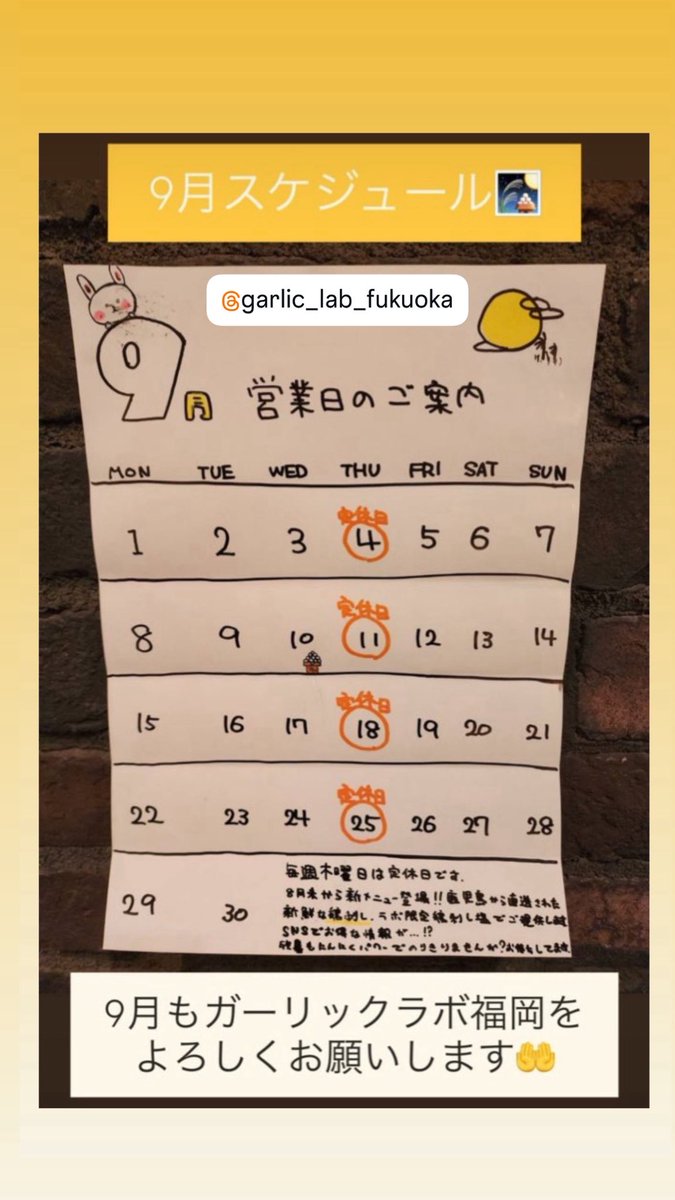 9月スケジュール🎑
@garlic_lab_fukuoka
9月 営業日のご案内
MON TUE WED THU FRI SAT SUN
定休日
1 2 3 4 5 6 7
定休日
8 9 10 11 12 13 14
定休日
15 16 17 18 19 20 21
定休日
22 23 24 25 26 27 28
29 30
毎週木曜日は定休日です.
8月末から新メニュー登場!!鹿児島から直送された
新鮮な鶏刺し.ラボ限定鶏刺し塩でご提供します
SNSでお得な情報が...!?
残暑もにんにくパワーでのりきりませんか?お待ちしてます
9月もガーリックラボ福岡を
よろしくお願いします🤲